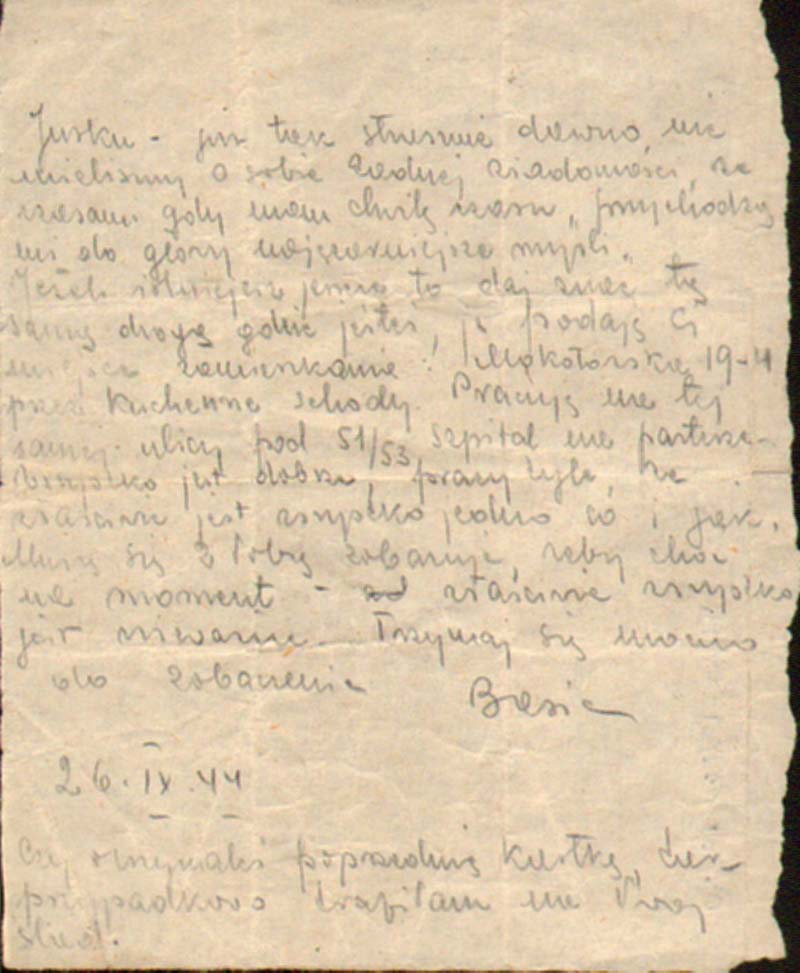 Jusku - już tak strasznie dawno nie
mieliśmy o sobie żadnej wiadomości, że
czasami gdy mam chwilę czasu „przychodzą
mi do głowy najczarniejsze myśli„
Jeżeli istniejesz jeszcze to daj znać tą
samą drogą gdzie jesteś, ja podaję Ci
miejsce zamieszkania: Mokotowska 19-4
przez kuchenne schody. Pracuję na tej
samej ulicy pod 51/53 szpital na parterze-
Wszystko jest dobrze, pracy tyle, że
właściwie jest wszystko jedno co i jak.
Muszę się z Tobą zobaczyć, żeby choć
na moment - właściwie wszystko
jest nieważne. Trzymaj się mocno
do zobaczenia
Basia
26.IX.44
Czy otrzymałeś poprzednią kartkę,
przypadkowo trafiłam na Twój
ślad.